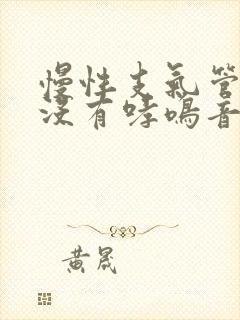 慢性支氣管
沒有哮鳴音
黃晟